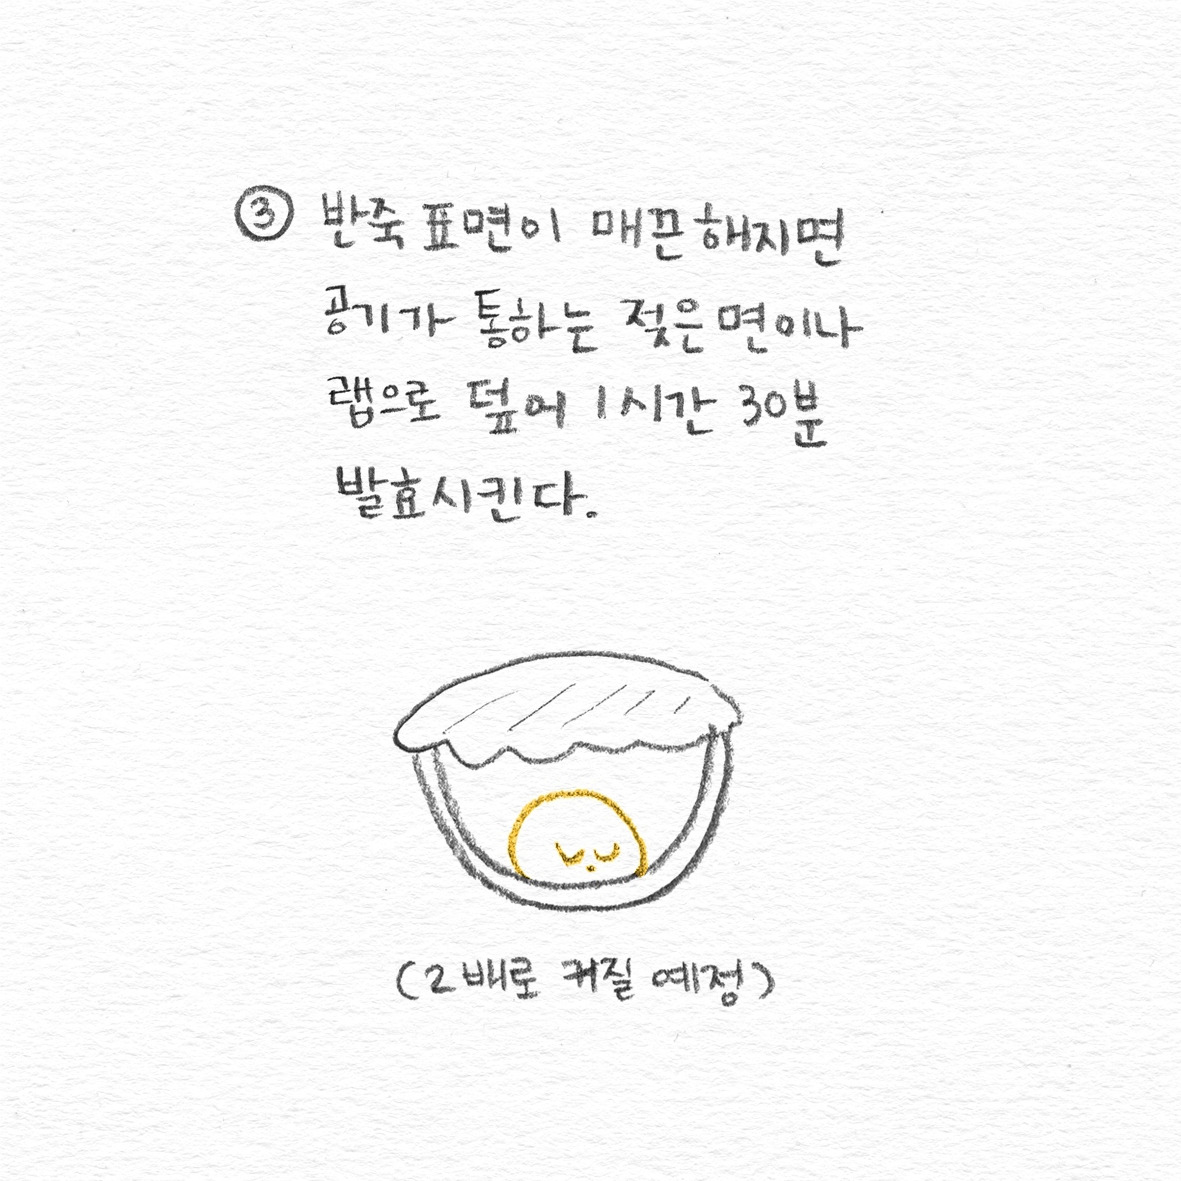 ③ 반죽 표면이 매끈해지면
공기가 통하는 젖은면이나
랩으로 덮어 1시간 30분
발효시킨다.
(2배로 커질 예정)